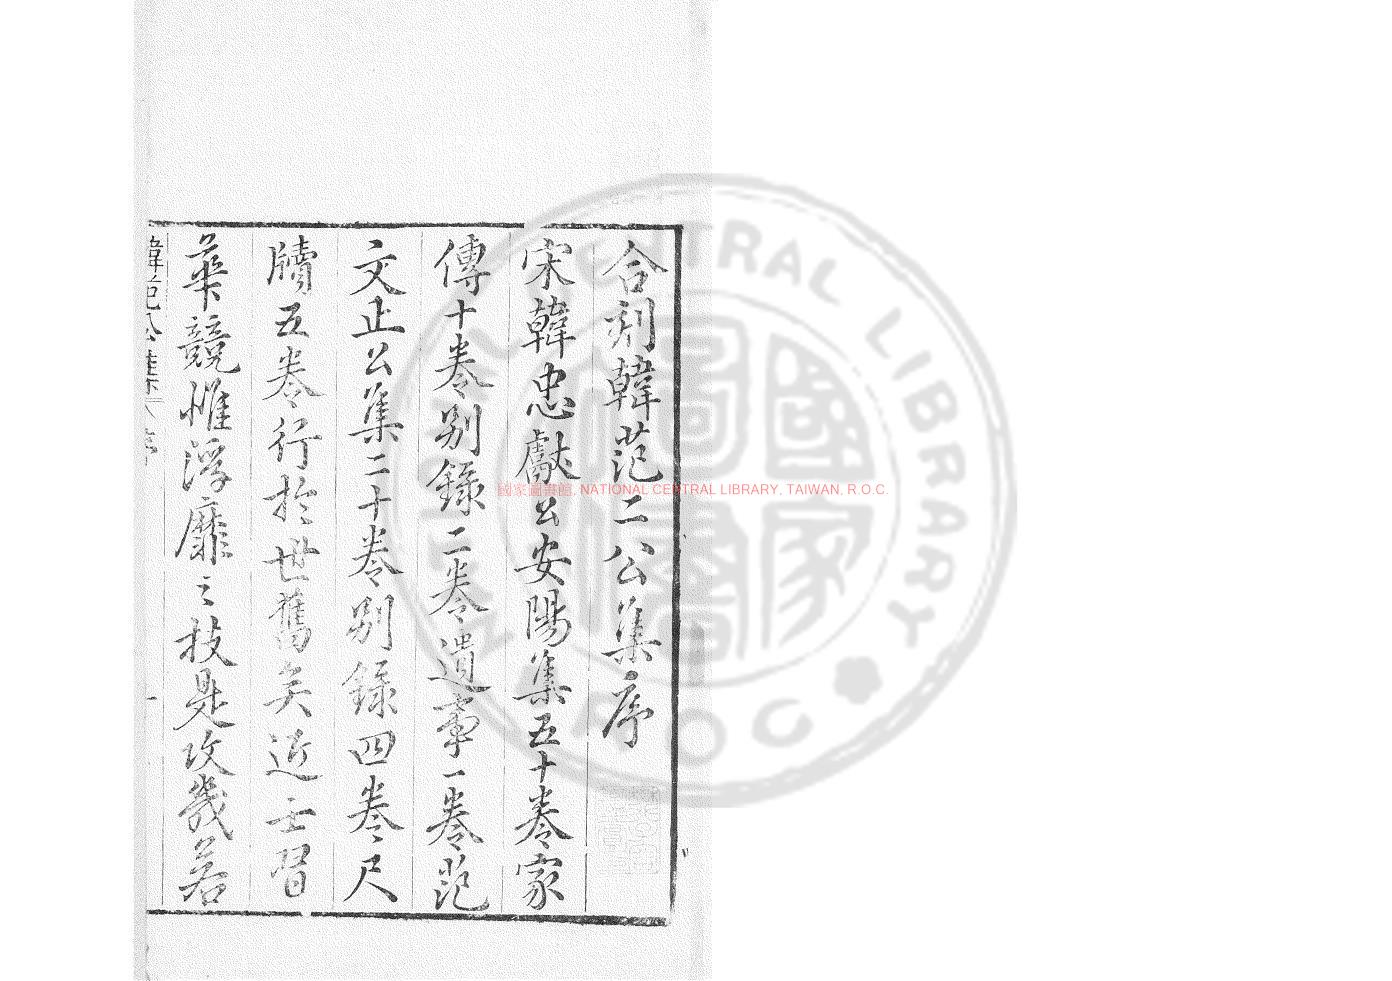 合刻韓范二公集序
宋韓忠獻公安陽集五十卷家
傳十卷別錄二卷遺事一卷范
文正公集二十卷別錄四卷尺
牘五卷行於世舊矣近士習
華競惟浮靡之技是攻幾若
韓范公集 序 一
國家圖書館, NATIONAL CENTRAL LIBRARY, TAIWAN, R.O.C.